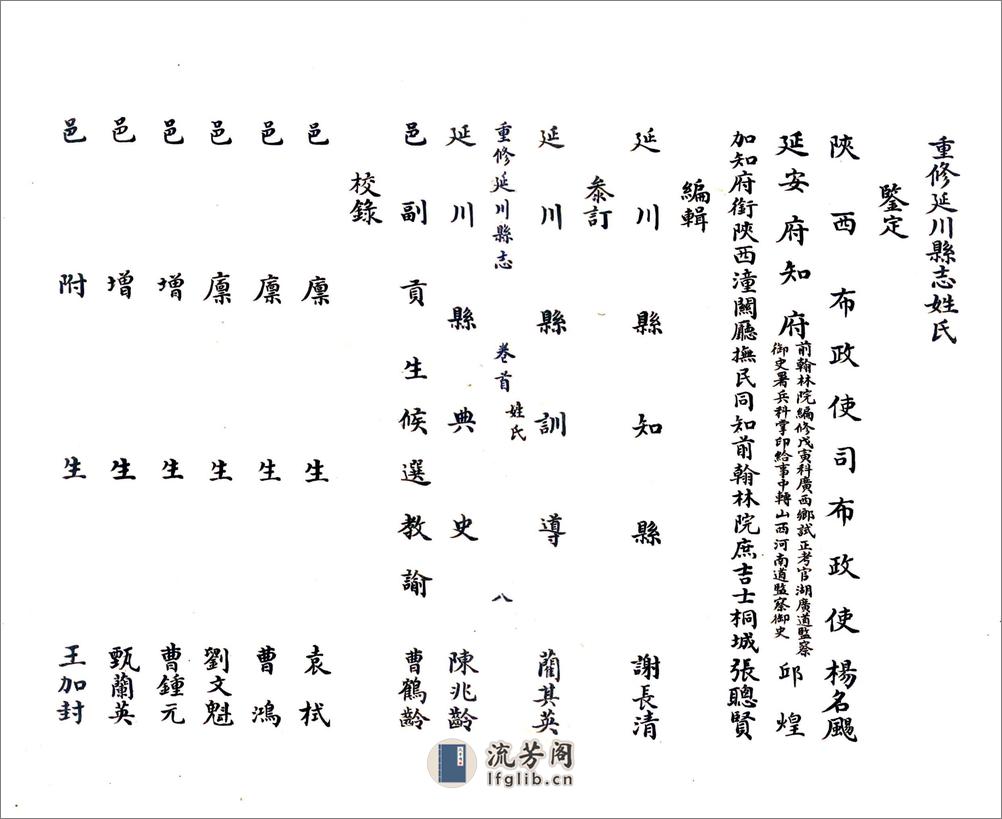 重修延川縣志姓氏
鑒定
陝西布政使司布政使楊名颺
延安府知府前翰林院編修戊寅科廣西鄉試正考官湖廣道監察
御史署兵科掌印給事中轉山西河南道監察御史邱煌
加知府銜陝西潼關廳撫民同知前翰林院庶吉士桐城張聰賢
編輯
延川縣知縣謝長清
叅訂
延川縣訓導藺其英
重修延川縣志 卷首 姓氏 八
延川縣典史陳兆齡
邑副貢生候選教諭曹鶴齡
校錄
邑廩生袁栻
邑廩生曹鴻
邑廩生劉文魁
邑增生曹鍾元
邑增生甄蘭英
邑附生王加封
流芳阁
lfglib.cn